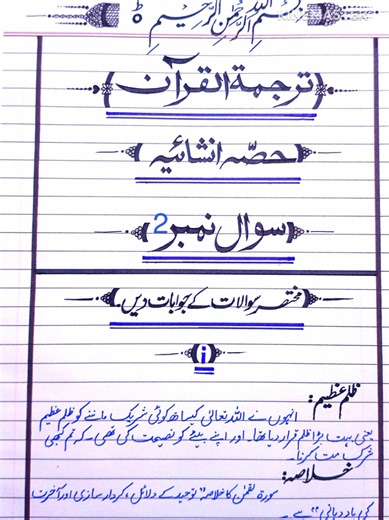 بسم اللہ الرحمٰن الرحیم
ترجمۃ القرآن
حصّہ انشائیہ
سوال نمبر 2
مختصر سوالات کے جوابات دیں۔
i
ظلم عظیم:
انہوں نے اللہ تعالیٰ کیساتھ کوئی شریک ماننے کو ظلم عظیم
یعنی بہت بڑا ظلم قرار دیا تھا۔ اور اپنے بیٹے کو نصیحت کی تھی۔ کہ تم کبھی
شرک مت کرنا۔
خلاصہ:
سورۃ لقمٰن کا خلاصہ "توحید کے دلائل، کردار سازی اور آخرت
کی یاد دہانی" ہے۔